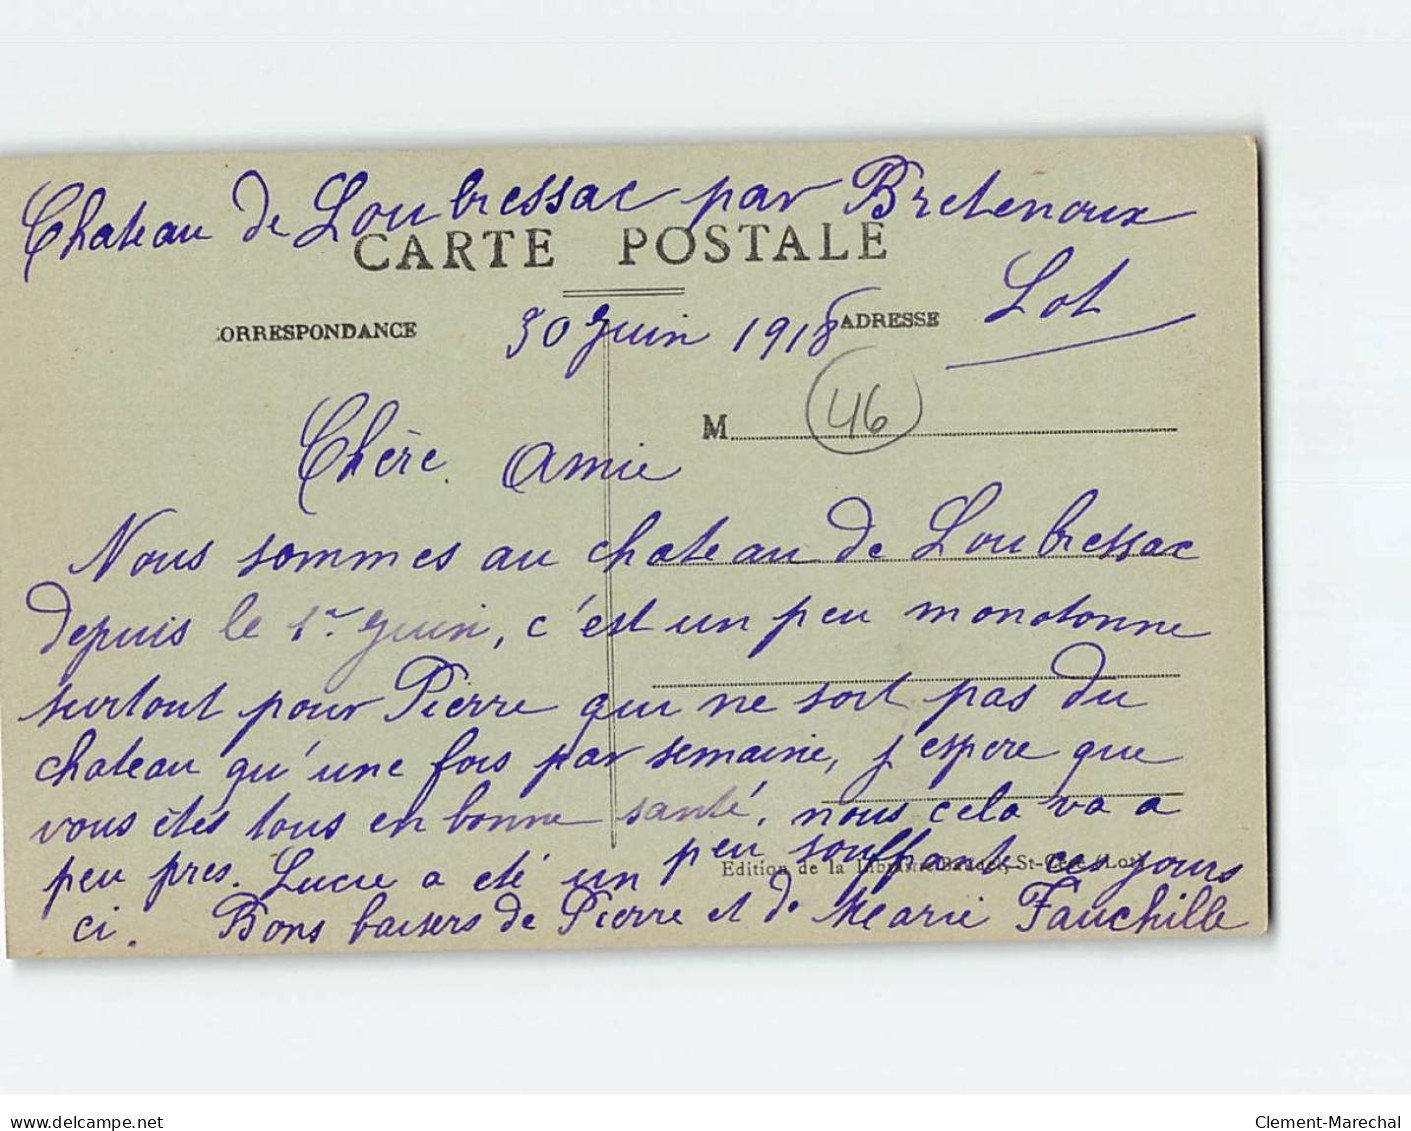 Chateau de Loubressac par Bretenoux
CARTE POSTALE
Lot
ORRESPONDANCE
30 Juin 1918
ADRESSE
M
46
Chère Amie
Nous sommes au chateau de Loubressac
depuis le 1er Juin, c'est un peu monotonne
surtout pour Pierre qui ne sort pas du
chateau qu'une fois par semaine, j'espere que
vous êtes tous en bonne santé, nous cela va a
peu pres. Lucie a eté un peu souffrante ces jours
ci. Bons baisers de Pierre et de Marie Fauchille
Edition de la Librairie St-Céré (Lot)
www.delcampe.net
Clement-Marechal